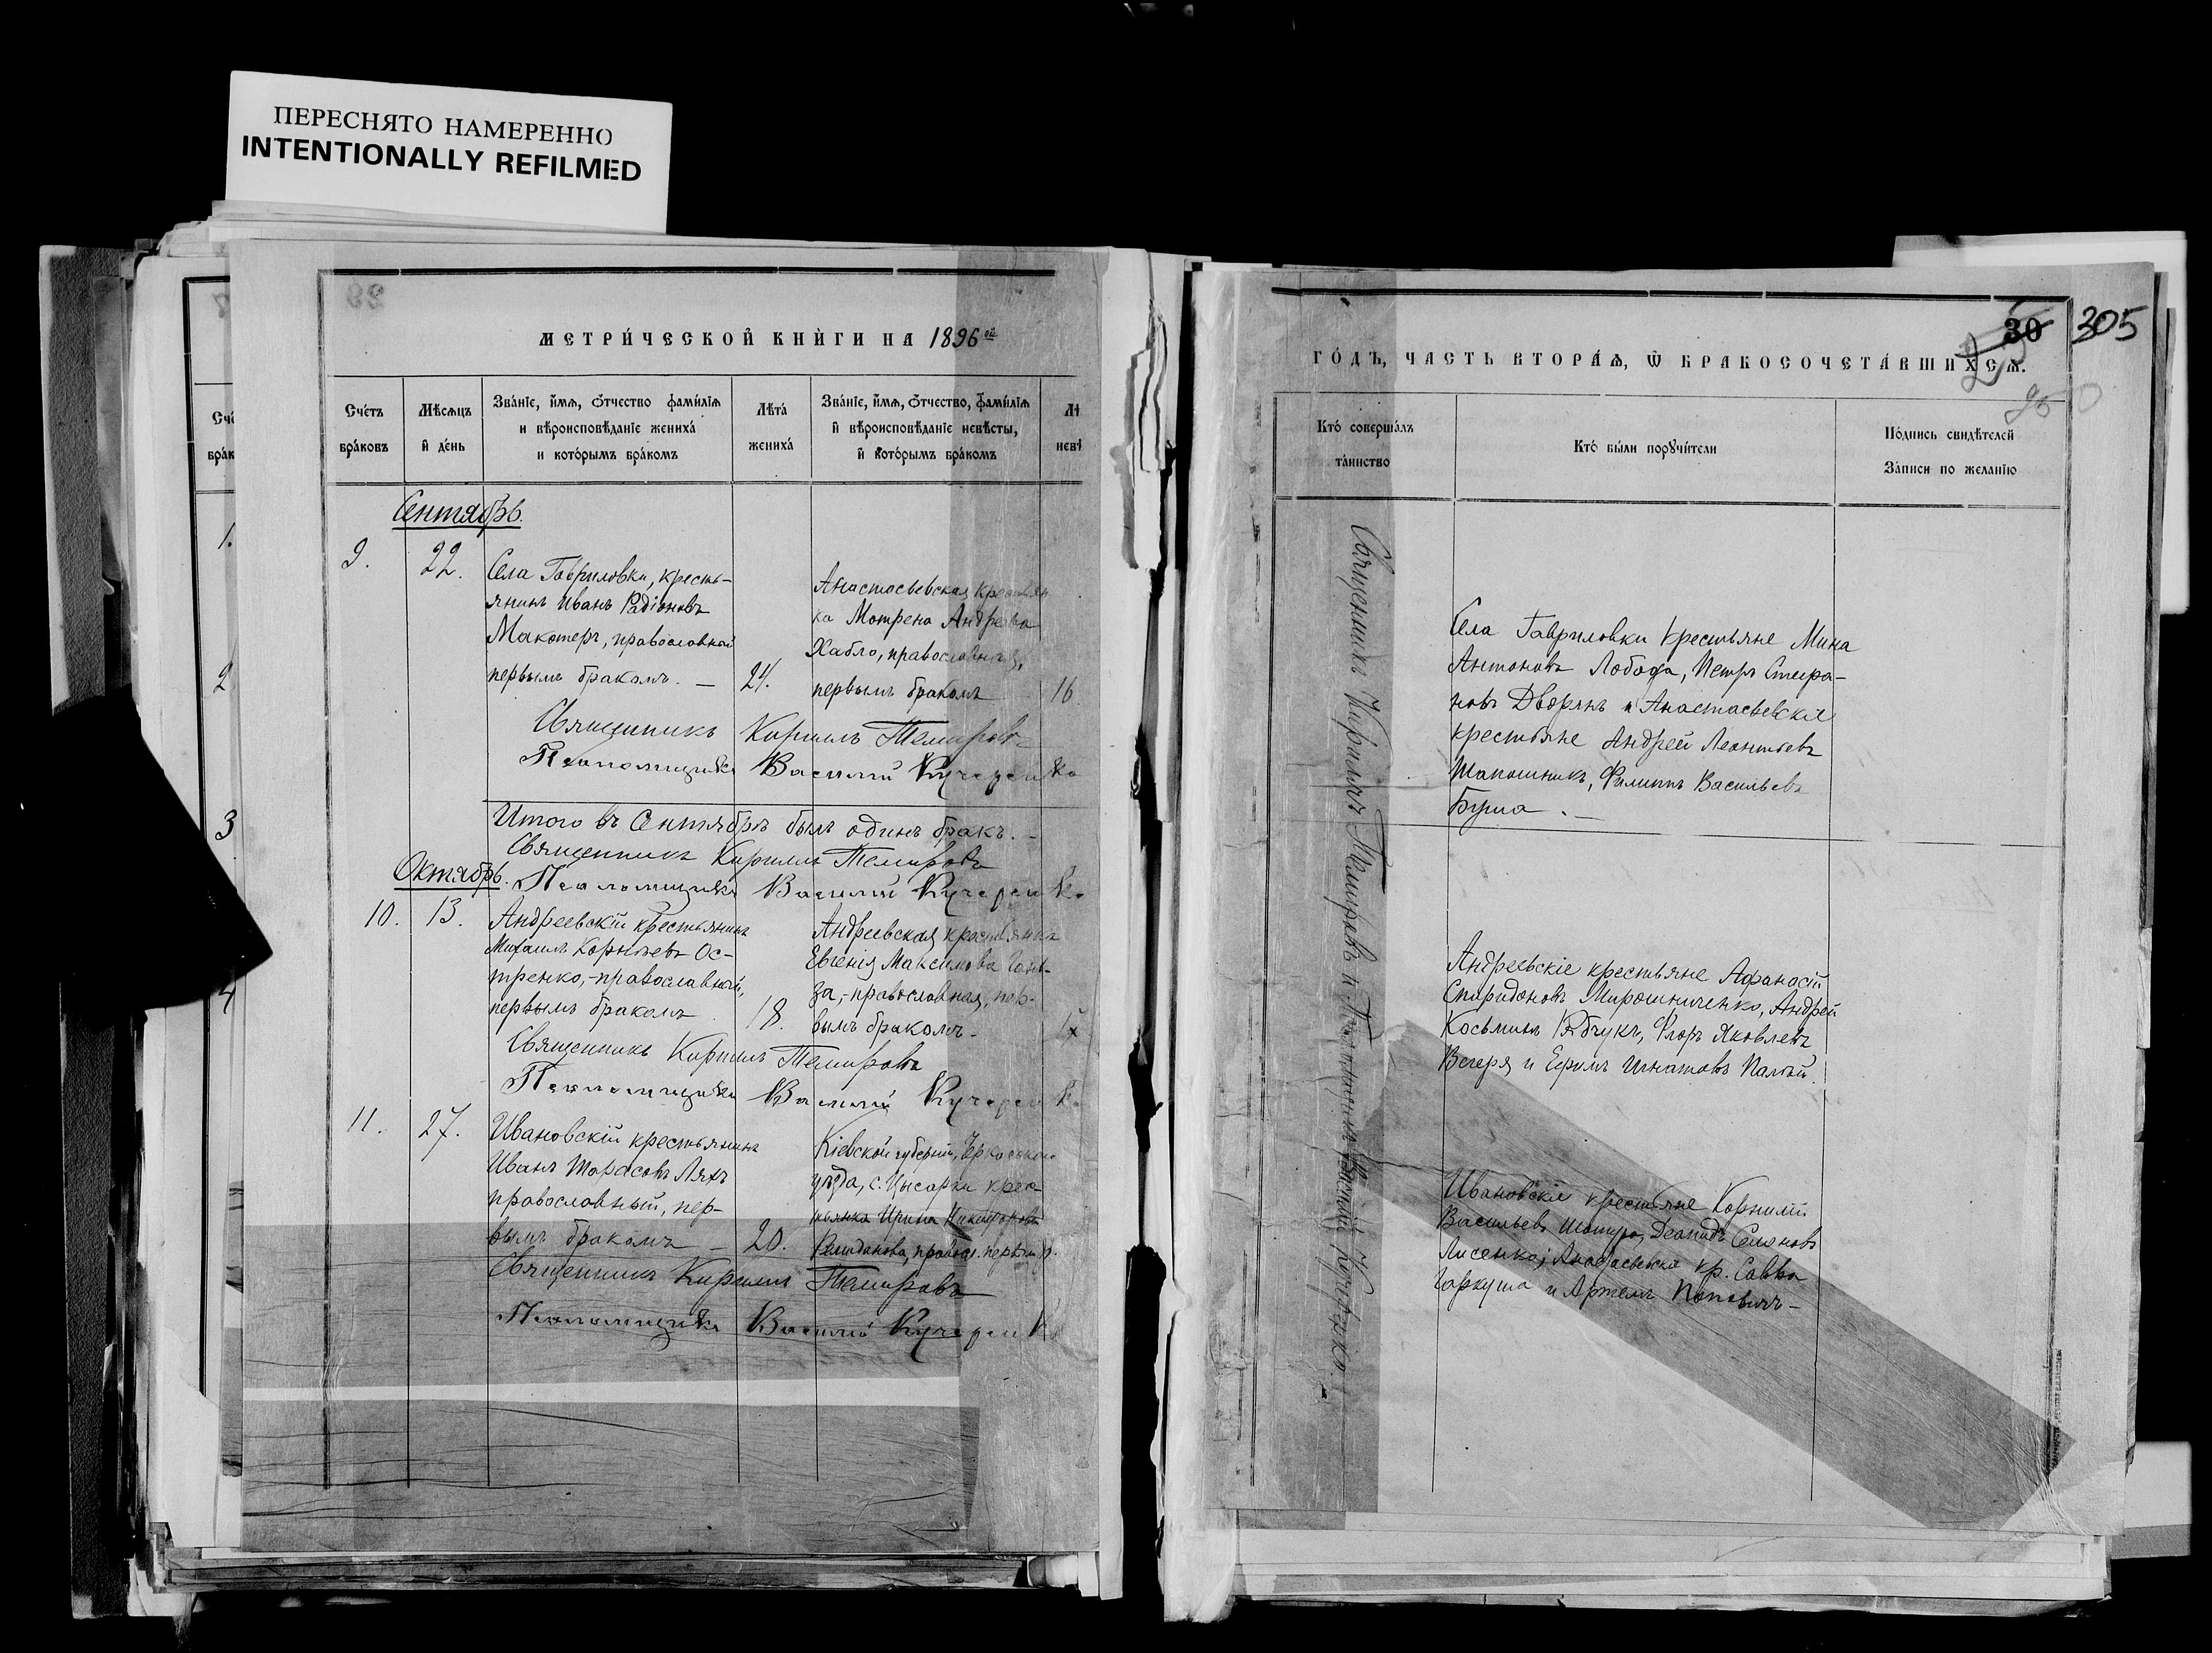 ПЕРЕСНЯТО НАМЕРЕННО
INTENTIONALLY REFILMED
МЕТРИ́ЧЕСКОЙ КНИ́ГИ НА 1896 ой
Сче́тъ бра́ковъ
Мѣ́сяцъ и де́нь
Зва́нїе, и́мѧ, ѻ́тчество фами́лїѧ и вѣроисповѣ́данїе жениха́ и кото́рымъ бра́комъ
Лѣта́ жениха́
Зва́нїе, и́мѧ, ѻ́тчество, фами́лїѧ и вѣроисповѣ́данїе невѣ́сты, и кото́рымъ бра́комъ
Сентябрь.
9.
22.
Села Гавриловки, кресть-
янинъ Иванъ Радіоновъ
Макотеръ, православный
первымъ бракомъ. —
24.
Анастасьевская крестьян
ка Мотрена Андреева
Хабло, православная,
первымъ бракомъ
16
Священникъ Кириллъ Темировъ
Псаломщикъ Василий Кучеренко
Итого въ Сентябрѣ былъ одинъ бракъ. -
Священникъ Кириллъ Темировъ
Октябрь.
Псаломщикъ Василий Кучеренко
10.
13.
Андреевскій крестьянинъ
Михаилъ Корнѣевъ Ос-
тренко,- православный,
первымъ бракомъ
18.
Андреевская крестьянка
Евгенія Максимова
за,- православная, пер-
вымъ бракомъ-
Священникъ Кириллъ Темировъ
Псаломщикъ Василий Кучеренко
11.
27.
Ивановскій крестьянинъ
Иванъ Тарасовъ Ляхъ
православный, пер-
вымъ бракомъ —
20.
Кіевской губерніи, Черкасскаго
уѣзда, с. Цысарки крес-
тьянка Ирина Никифорова
правосл. первым б.
Священникъ Кириллъ Темировъ
Псаломщикъ Василий Кучеренко
30 305
ГО́ДЪ, ЧАСТЬ ВТОРА́Ѧ, Ѽ БРАКОСОЧЕТА́ВШИХСѦ.
Кто́ соверша́лъ та́инство
Кто́ бы́ли порꙋчи́тели
По́дпись свидѣ́телей За́писи по жела́нїю
Священникъ Кириллъ Темировъ и Псаломщикъ Василій Кучеренко. -
Села Гавриловки крестьяне Мина
Антоновъ Лобода, Петръ
новъ Дворянъ и Анастасьевскіе
крестьяне Андрей Леонтьевъ
Шапошникъ, Филиппъ Васильевъ
Бурма. —
Андреевскіе крестьяне Афанасій
Спиридоновъ Мирошниченко, Андрей
Косьминъ Рябчукъ, Флоръ Яковлевъ
Вечеря и Ефимъ Игнатовъ Палій.
Ивановскіе крестьяне Корнилій
Васильевъ Леонидъ Семеновъ
Лисенко; кр. Савва
Гаркуша и Артемъ Поповичъ-